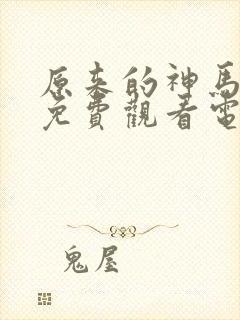 原来的神馬
免費觀看電
鬼屋